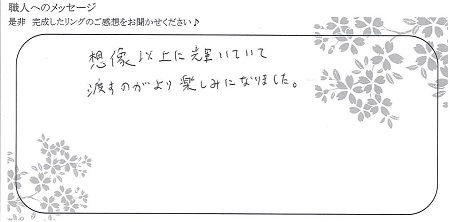 職人へのメッセージ
是非 完成したリングのご感想をお聞かせください♪
想像以上に輝いていて
渡すのがより楽しみになりました。